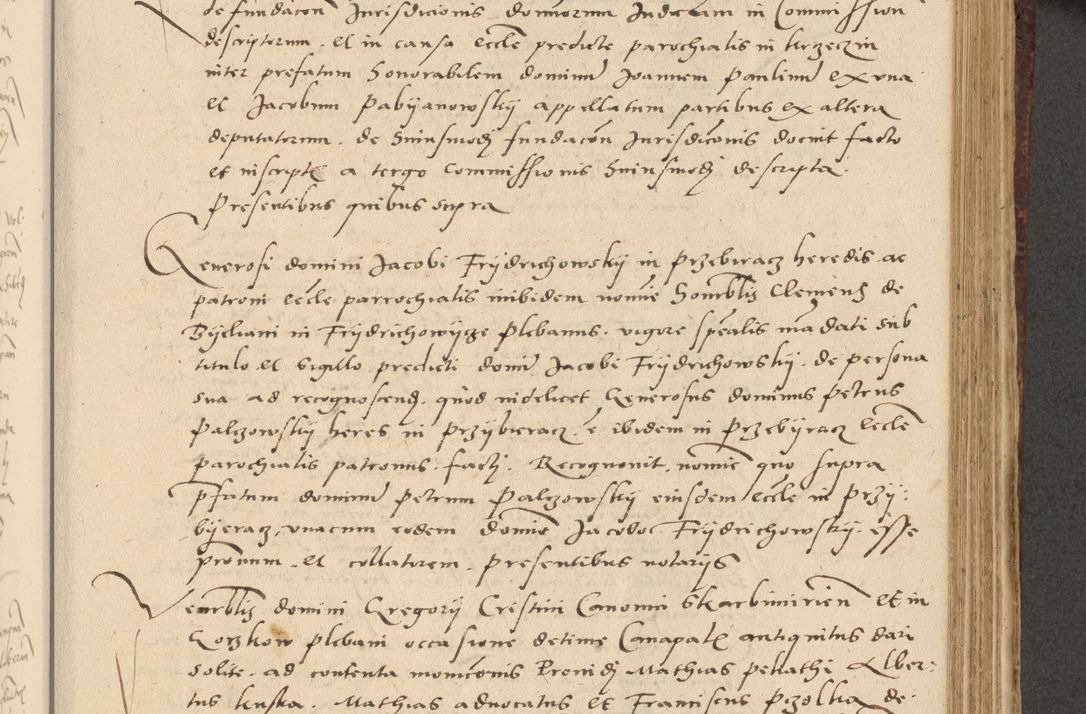 de fundacōn Jurisdicionis dominorum Judicum in Commission
descriptorum . Et in causa eccle predicte parochialis in Krzeczin
inter prefatum Honorabilem dominū Joannem Paulinū ex vna
et Jacobum Pabyanowskÿ appellatum partibus ex altera
deputatorum . de huiusmodj fundacōn Jurisdicōnis docuit facto
et inscripte a tergo Commissionis huiusmodj descripta .
Presentibus quibus supra
Generosi domini Jacobi Frÿdrichowskÿ in Przebieracz heredis ac
patroni eccle parrochialis inibidem nomīe Honorblis Clemens de
Bÿeliani in Frÿdrichowÿcze plebanus . vigore spēalis mādati sub
titulo et Sigillo predicti domī Jacobi Frÿdrichowskÿ . de persona
sua ad recognoscend . quod videlicet Generosus dominus Petrus
Palczowskÿ heres in Przÿbieracz ē ibidem in Przebÿracz eccle
parochialis patronus . factj . Recognouit nomīe quo supra
pfatum dominū Petrum Palczowskÿ eiusdem eccle in Przÿ:
bÿeracz , vnacum eodem domīo Jacobo Frÿdrichowskÿ . esse
pronum et collatorem . presentibus notarÿs
Venerblis domini Gregorÿ Cristini Canonici Skarbimirieñ et in
Gorzkow plebani occasione detinie Canapale antiquitus dari
solite . ad contenta monicōnis Prouidj Mathias pellathi Alber:
tus kuska . Mathias aduocatus et Franciscus Pczolka de: